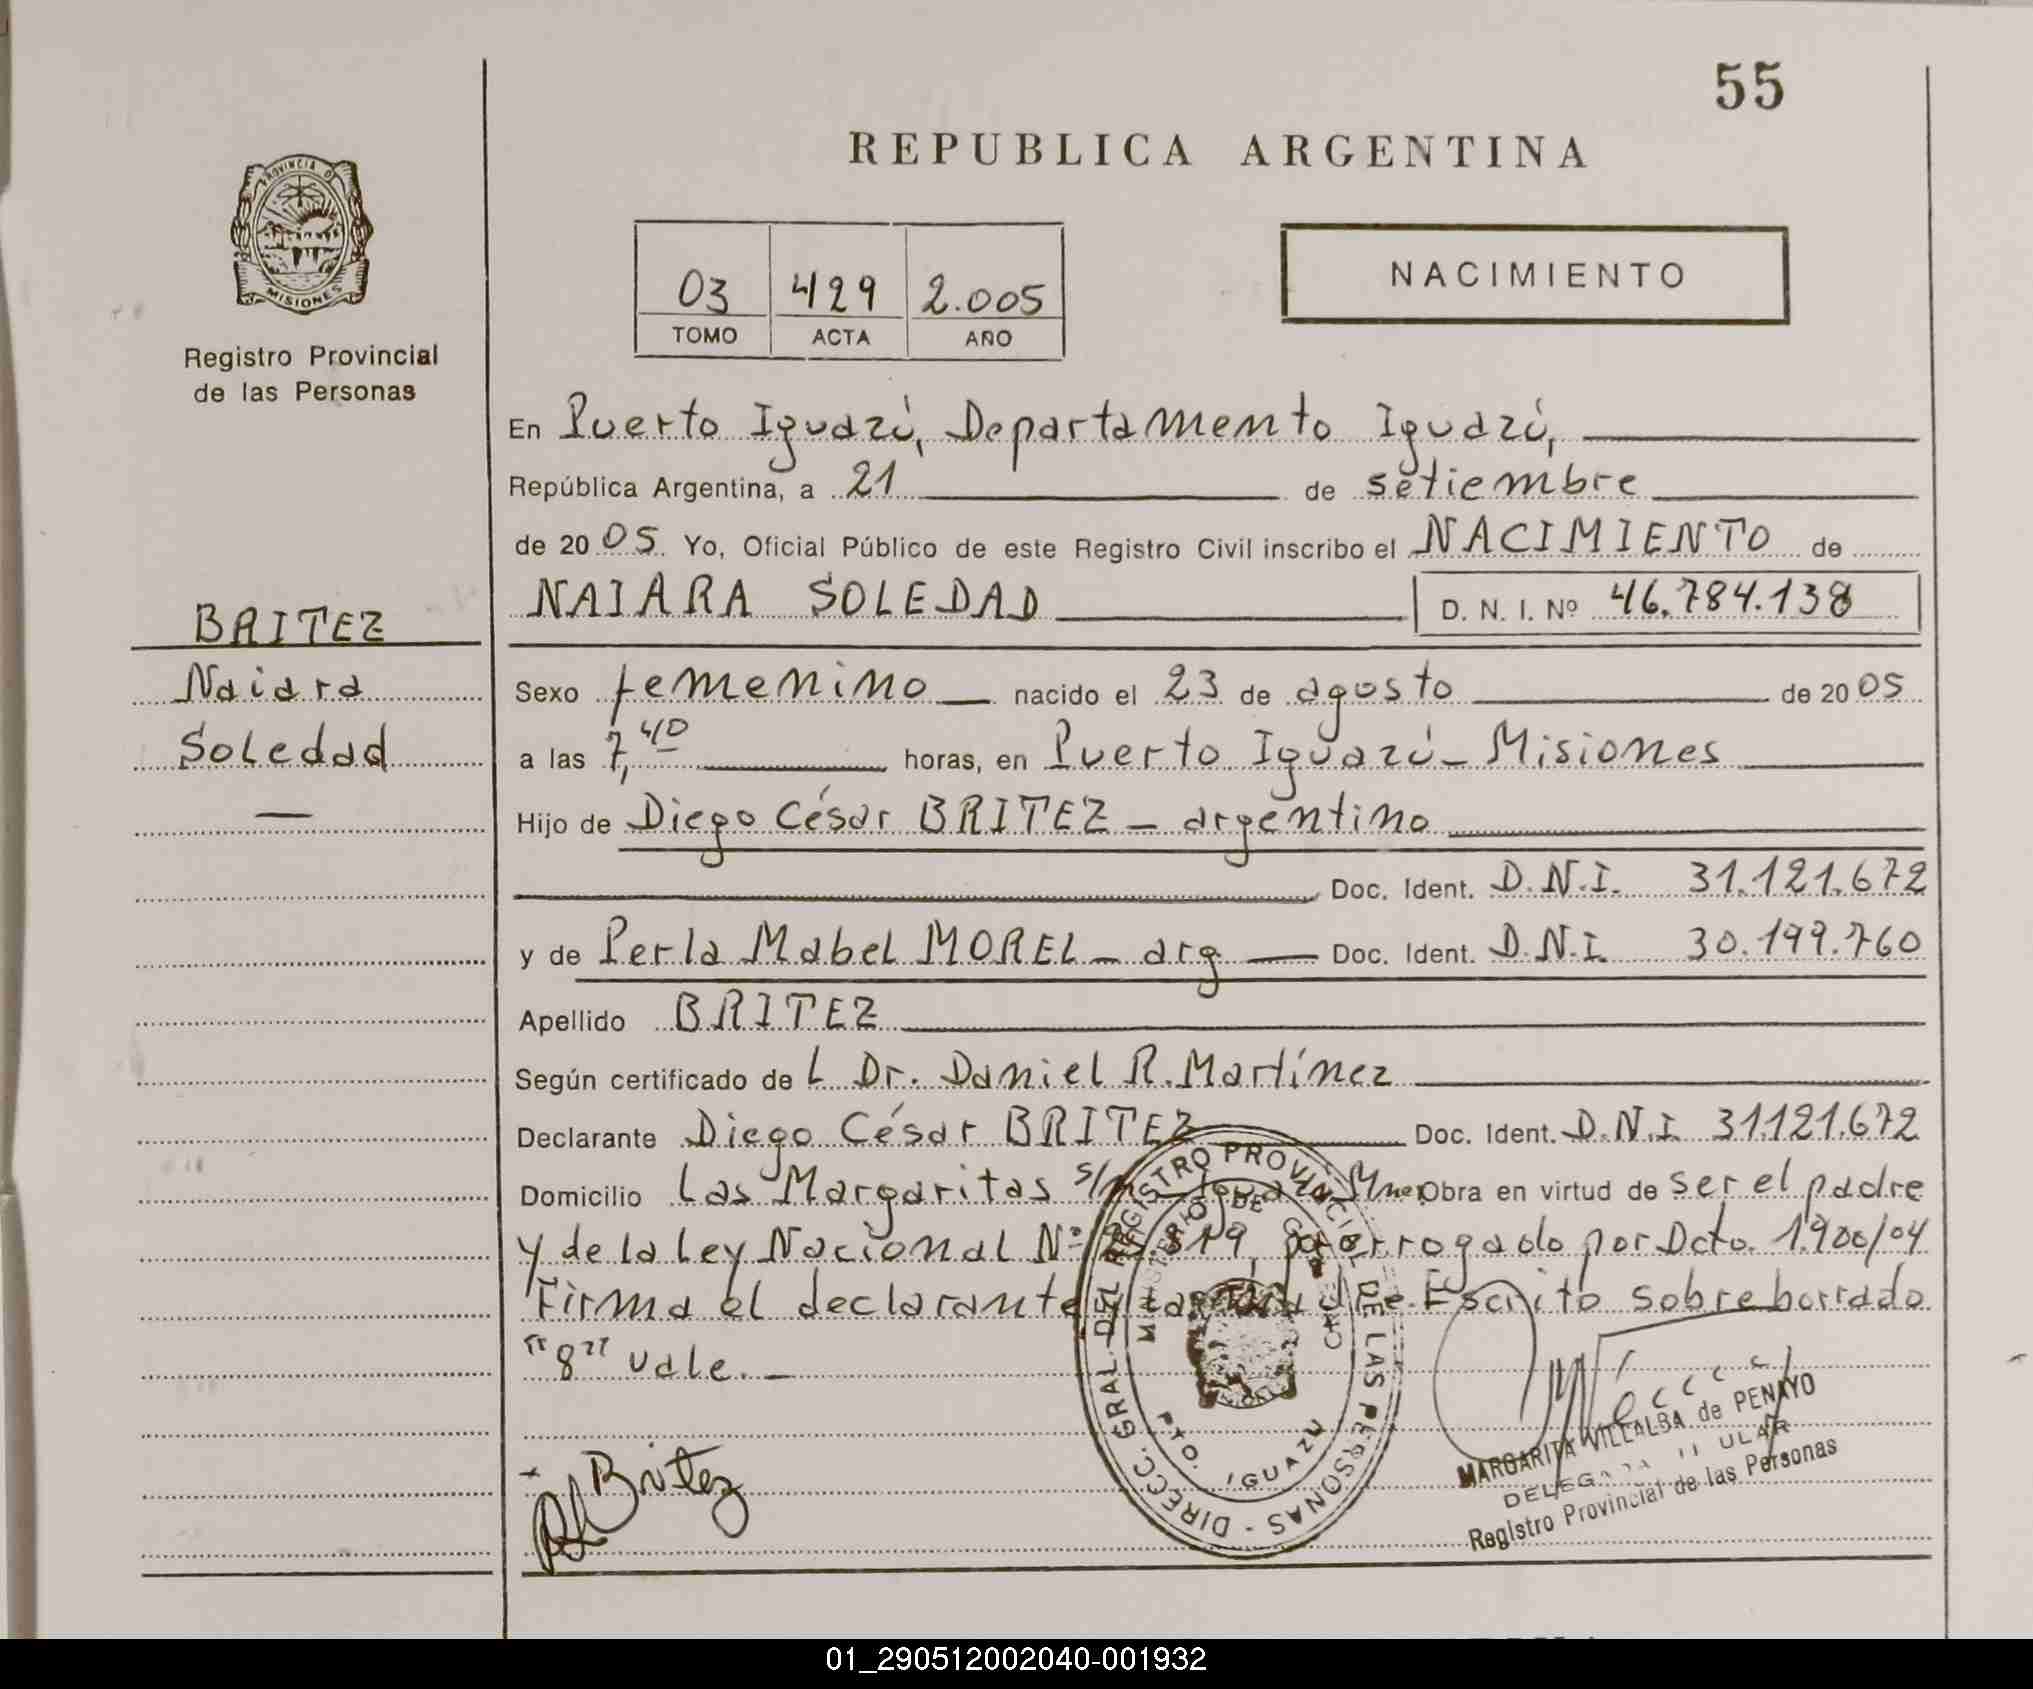 55
REPUBLICA ARGENTINA
PROVINCIA DE
MISIONES
Registro Provincial
de las Personas
03 429 2.005
TOMO ACTA AÑO
NACIMIENTO
En Puerto Iguazú, Departamento Iguazú,
República Argentina, a 21 de setiembre
de 20 05. Yo, Oficial Público de este Registro Civil inscribo el NACIMIENTO de
NAIARA SOLEDAD D. N. I. Nº 46.784.138
BRITEZ
Naiara
Soledad
Sexo femenino nacido el 23 de agosto de 20 05
a las 7,40 horas, en Puerto Iguazú - Misiones
Hijo de Diego César BRITEZ - argentino
Doc. Ident. D.N.I. 31.121.672
y de Perla Mabel MOREL - arg Doc. Ident. D.N.I. 30.199.760
Apellido BRITEZ
Según certificado de L Dr. Daniel R. Martínez
Declarante Diego César BRITEZ Doc. Ident. D.N.I. 31.121.672
Domicilio Las Margaritas Obra en virtud de ser el padre
y de la Ley Nacional Nº por Dcto. 1.900/04
Firma el declarante Escrito sobreborrado
"8" vale. -
DIRECC. GRAL. DEL REGISTRO PROVINCIAL DE LAS PERSONAS
PTO. IGUAZU
Britez
MARGARITA VILLALBA de PENAYO
Registro Provincial de las Personas
01_290512002040-001932